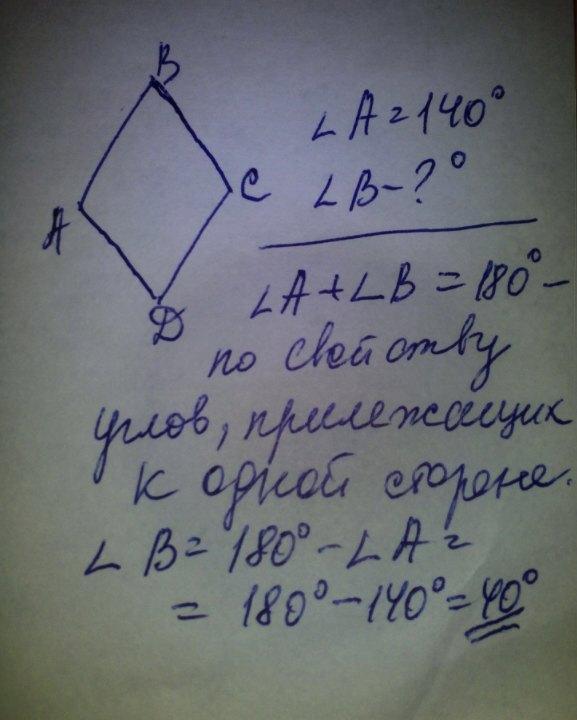 B
A
C
D
∠A=140°
∠B-?°
∠A+∠B=180°-
по свойству
углов, прилежащих
к одной стороне.
∠B=180°-∠A=
=180°-140°=40°